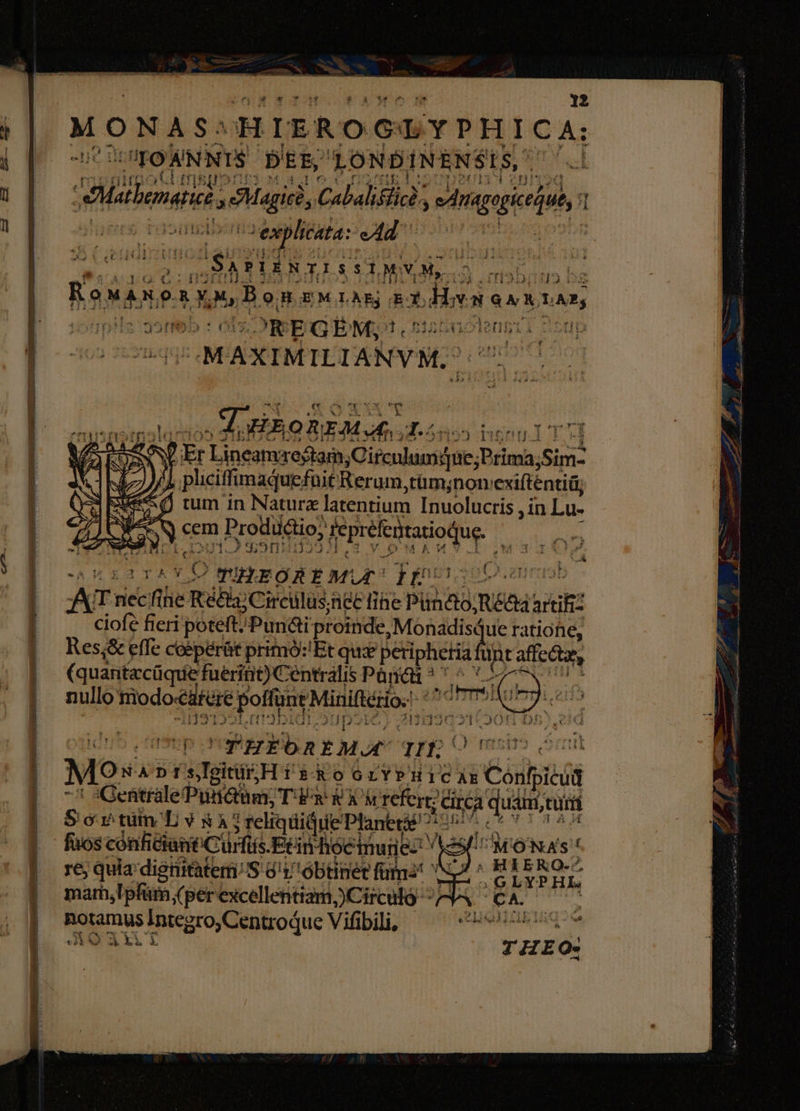 12
MONAS HIEROGLYPHICA:
IOANNIS DEE, LONDINENSIS,
Mathematicè, Magicè, Cabalisticè, Anagogicèque,
explicata: Ad
SAPIENTISSIMVM,
ROMANORVM, BOHEMIAE, ET HVNGARIAE,
REGEM,
MAXIMILIANVM.
THEOREMA I.
PEr Lineam rectam, Circulumque, Prima, Sim-
pliciſſimaque fuit Rerum, tum, non exiſtentiũ,
tum in Naturæ latentium Inuolucris, in Lu-
cem Productio, repreſentatioque.
THEOREMA II.
AT nec ſine Recta, Circulus, nec ſine Puncto, Recta artifi-
cioſe fieri poteſt. Puncti proinde, Monadisque ratione,
Res, & eſſe cœperũt primò: Et quæ peripheria ſunt affectæ,
(quantæcũque fuerint) Centralis Pũncti
nullo modo carere poſſunt Miniſterio.
THEOREMA III.
MONADIS, Igitur, HIEROGLYPHICAE Conſpicuũ
Centrale Punctum, TERRAM refert, circa quam, tum
SOL tum LVNA, reliquique Planetæ
ſuos conficiunt Curſus. Et in hoc munee MONAS
re, quia dignitatem SOL obtinet ſum- HIERO-
mam, Ipſum, (per excellentiam,) Circulo GLYPHI-
CA.
notamus Integro, Centroque Viſibili,
THEO-